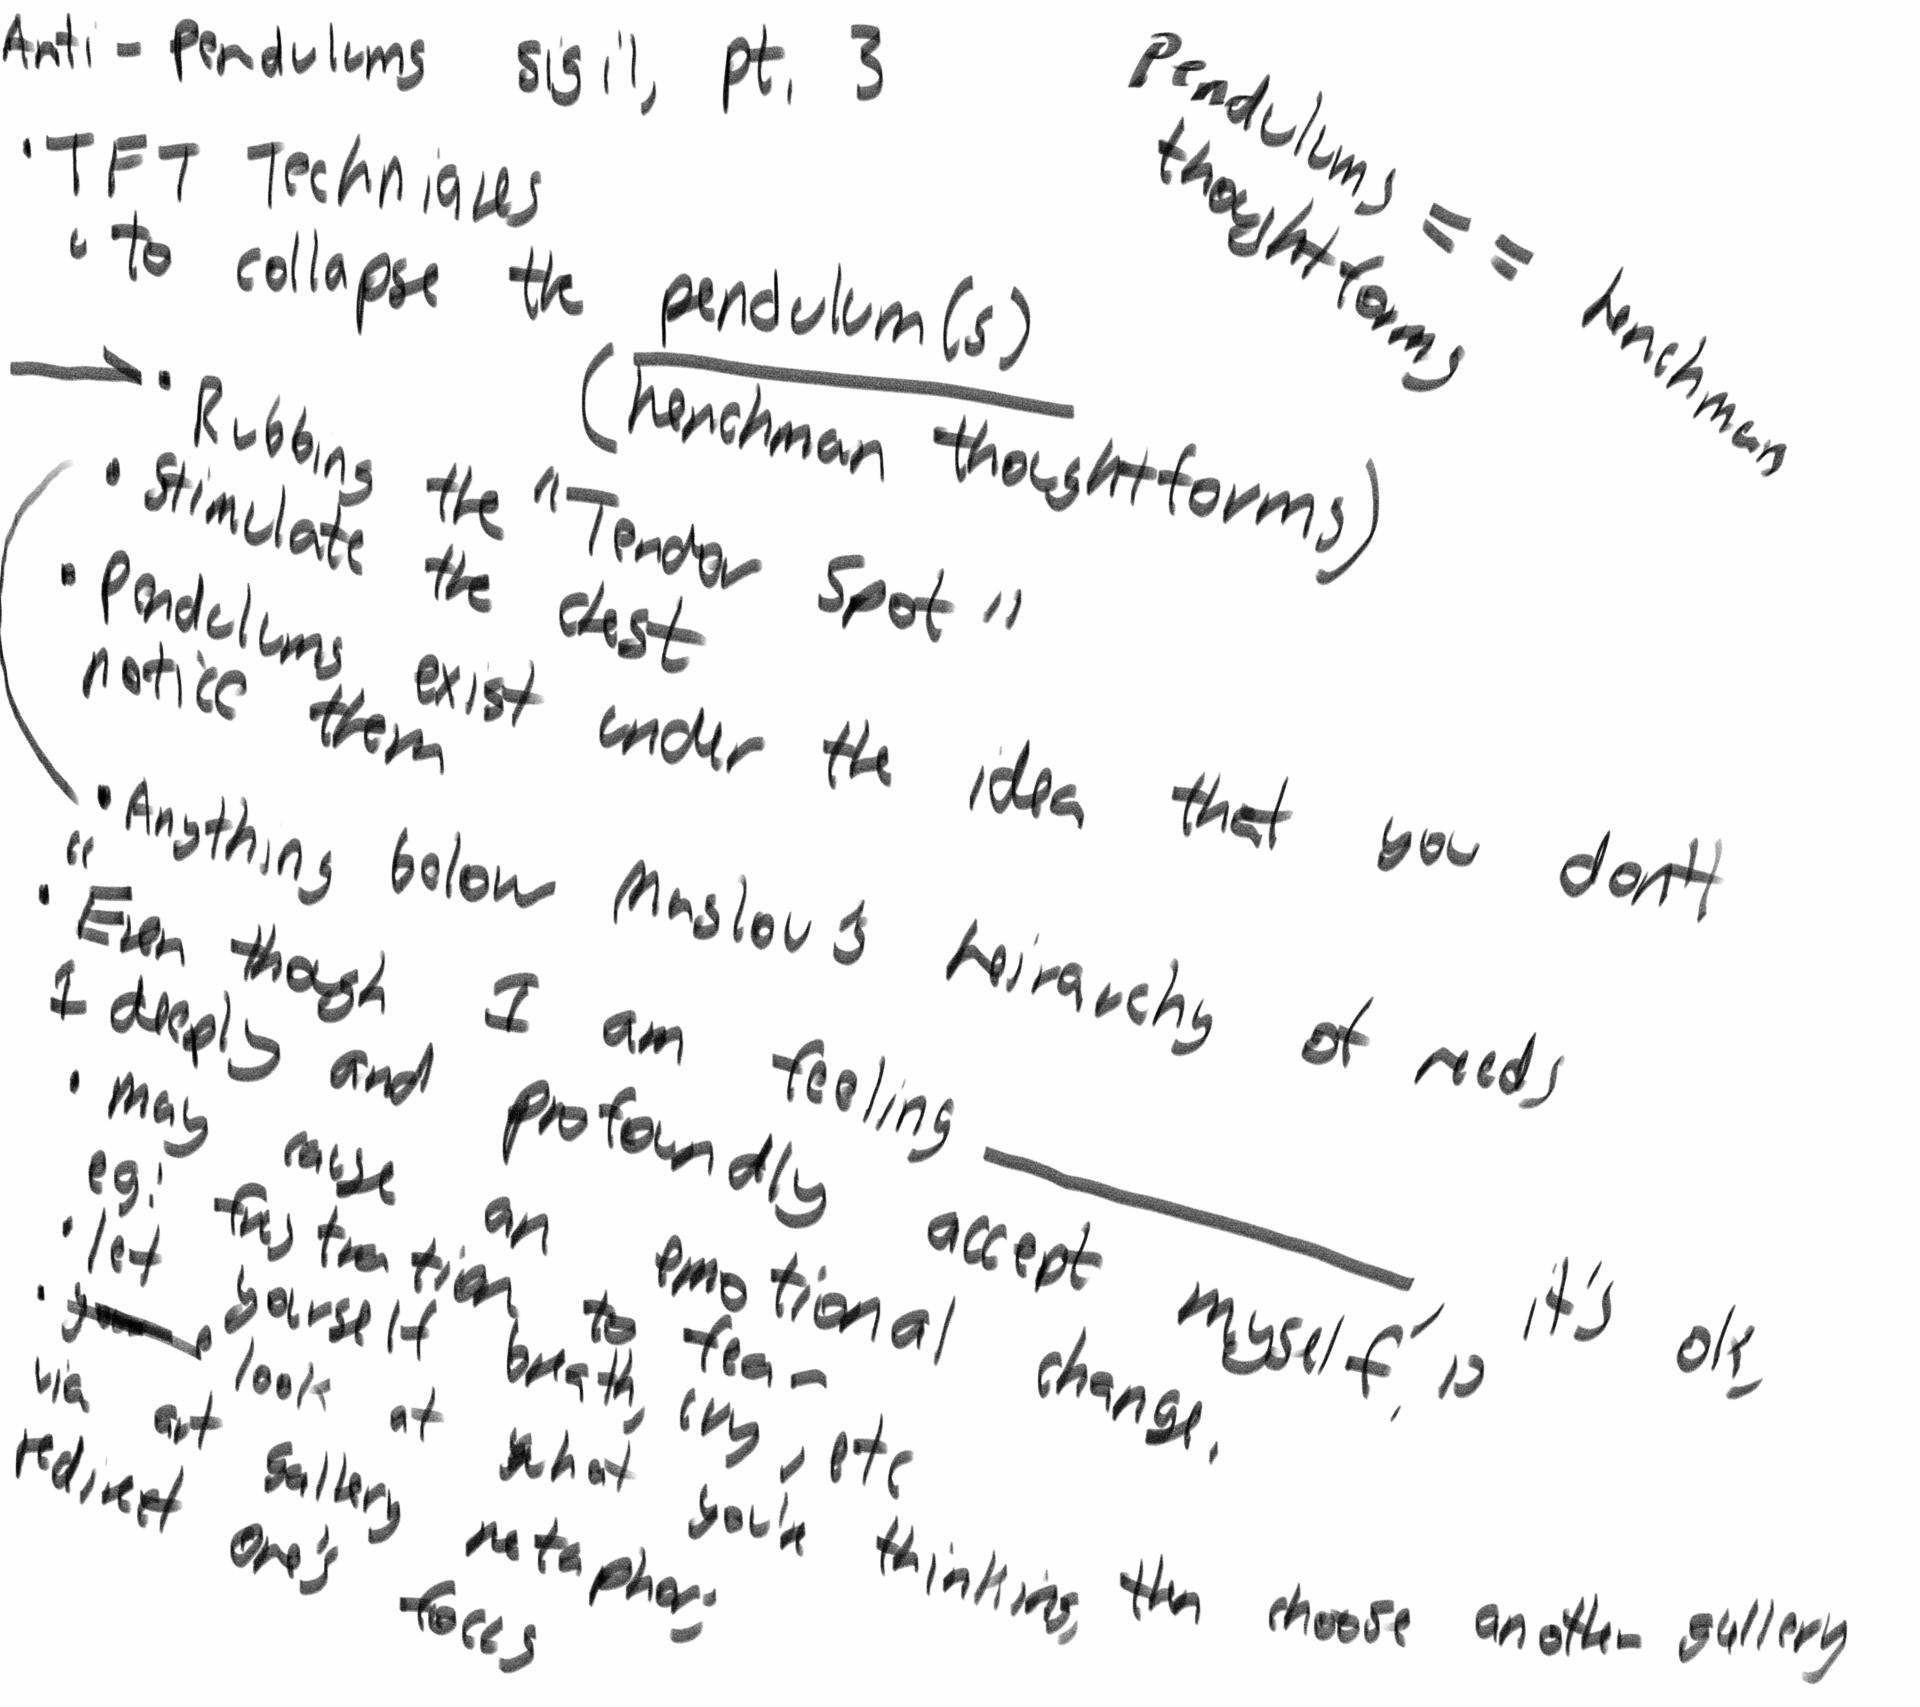 Anti-pendulums sigil, pt. 3
Pendulums == henchman
thoughtforms
• TFT Techniques
• to collapse the pendulum(s)
(henchman thoughtforms)
• Rubbing the "Tender Spot"
• stimulate the chest
• Pendulums exist under the idea that you don't
notice them
• Anything below Maslow's heirarchy of needs
"
• Even though I am feeling ______ it's ok,
I deeply and profoundly accept myself,"
• may cause an emotional change.
eg: frustration to fear
• let yourself breath, cry, etc
• look at what you're thinking, then choose another gallery
via art gallery metaphor;
redirect one's focus